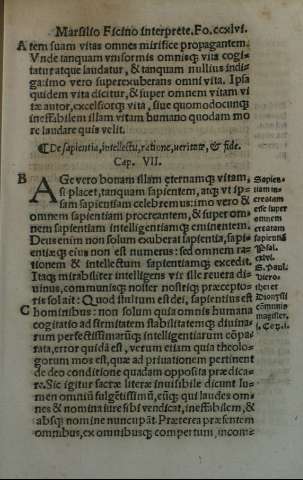 Marsilio Ficino interprete. Fo. ccxlvi.
A tem suam vitas omnes mirifice propagantem.
Vnde tanquam vniformis omnisq; vita cogi-
tatur atque laudatur, & tanquam nullius indi-
ga: imo vero superexuberans omni vita. Ipsa
quidem vita dicitur, & super omnem vitam vi
tæ autor, excelsiorq; vita, siue quomodocunq;
ineffabilem illam vitam humano quodam mo
re laudare quis velit.
¶ De sapientia, intellectu, ratione, veritate, & fide.
Cap. VII.
B AGe vero bonam illam æternamq; vitam,
si placet, tanquam sapientem, atq; vt ip-
sam sapientiam celebremus: imo vero &
omnem sapientiam procreantem, & super om-
nem sapientiam intelligentiamq; eminentem.
Deus enim non solum exuberat sapientia, sapi
entiæq; eius non est numerus: sed omnem ra
tionem & intellectum sapientiamq; excedit.
Itaq; mirabiliter intelligens vir ille reuera di-
uinus, communisq; noster nostriq; præcepto-
ris sol ait: Quod stultum est dei, sapientius est
C hominibus: non solum quia omnis humana
cogitatio ad firmitatem stabilitatemq; diuina-
rum perfectissimarūq; intelligentiarum cōpa
rata, error quidā est, verum etiam quia theolo-
gorum mos est, quæ ad priuationem pertinent
de deo conditione quadam opposita prædica-
re. Sic igitur sacræ literæ inuisibile dicunt lu-
men omniū fulgētissimū, eūq; qui laudes om-
nes & nomina iure sibi vendicat, ineffabilem, &
absq; nomine nuncupāt. Præterea præsentem
omnibus, ex omnibusq; compertum, incom-
Sapien-
tiam in-
creatam
esse super
omnem
creatam
sapientiā
Psal.
cxlvi.
S. Paul.
Hiero-
thei et
Dionysii
cōmunis
magister.
1. Cor. 1.